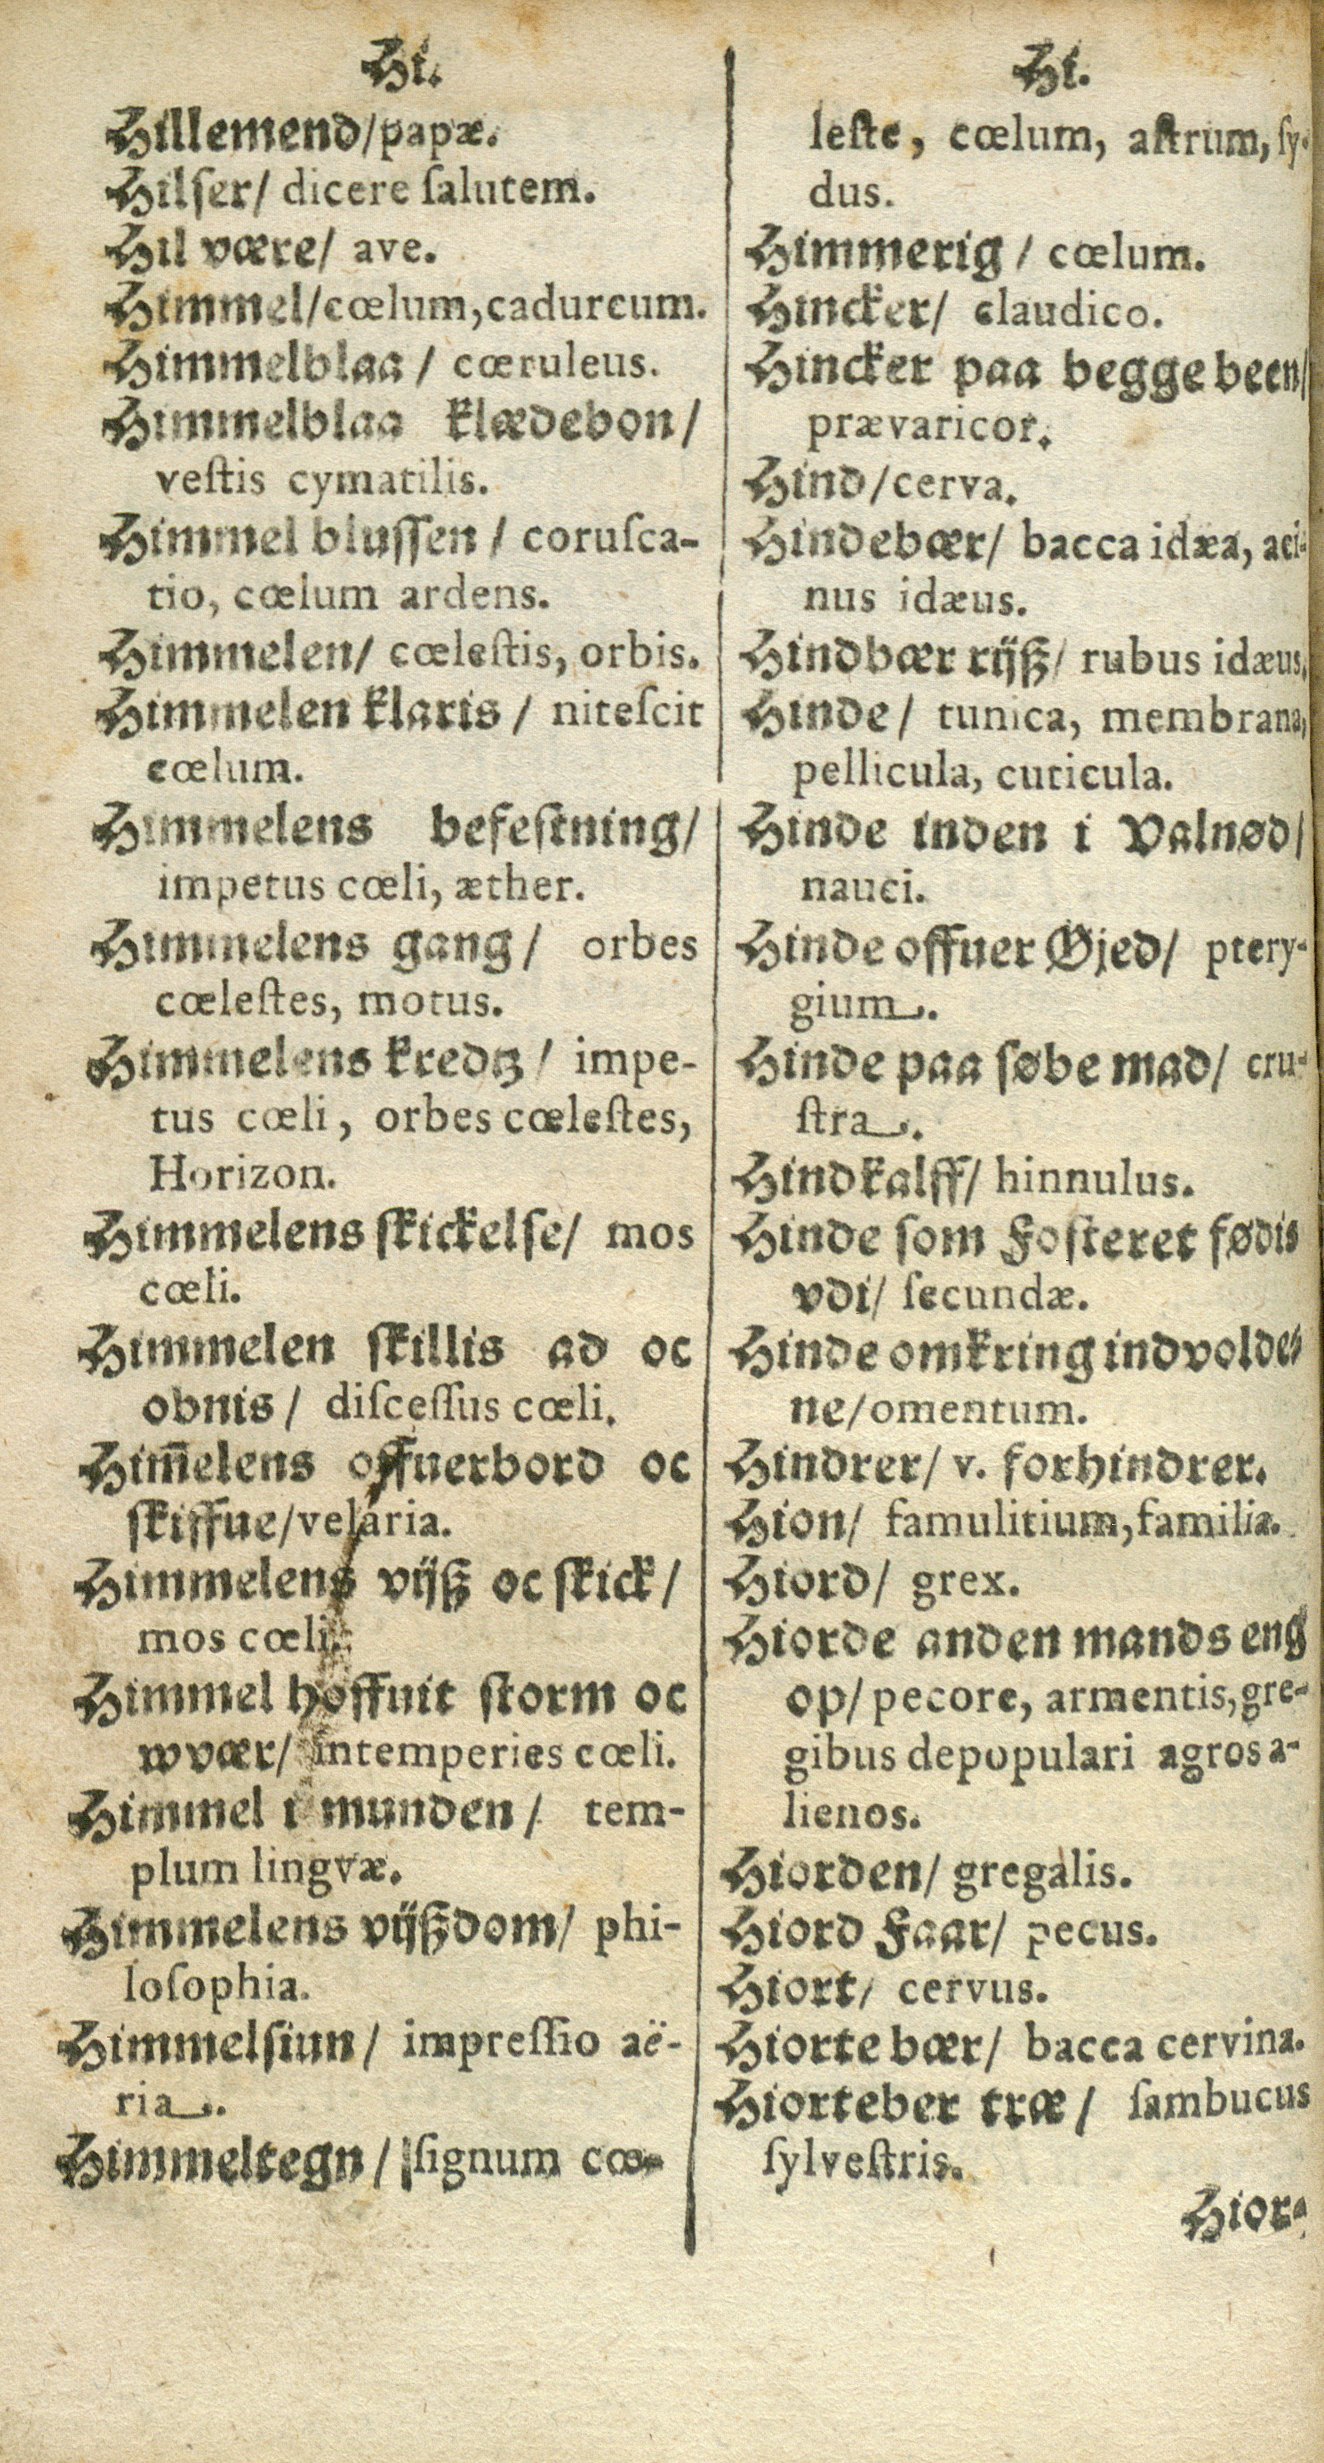 Hi.
Hillemend/papæ.
Hilſer/ dicere ſalutem.
Hil være/ ave.
Himmel/cœlum,cadurcum.
Himmelblaa/ cœruleus.
Himmelblaa klædebon/
veſtis cymatilis.
Himmel bluſſen/ coruſca-
tio, cœlum ardens.
Himmelen/ cœleſtis, orbis.
Himmelen klaris/ niteſcit
cœlum.
Himmelens befeſtning/
impetus cœli, æther.
Himmelens gang/ orbes
cœleſtes, motus.
Himmelens kredtz/ impe-
tus cœli, orbes cœleſtes,
Horizon.
Himmelens ſkickelſe/ mos
cœli.
Himmelen ſkillis ad oc
obnis/ diſceſſus cœli.
Him̄elens offuerbord oc
ſkiffue/velaria.
Himmelens vijß oc ſkick/
mos cœli.
Himmel hoffuit ſtorm oc
wvær/ intemperies cœli.
Himmel i munden/ tem-
plum lingvæ.
Himmelens vijßdom/ phi-
loſophia.
Himmelſiun/ impreſſio aë-
ria.
Himmeltegn/ ſignum cœ-
Hi.
leſte, cœlum, aſtrum, ſy-
dus.
Himmerig/ cœlum.
Hincker/ claudico.
Hincker paa begge been/
prævaricor.
Hind/cerva.
Hindebær/ bacca idæa, aci-
nus idæus.
Hindbær rijß/ rubus idæus.
Hinde/ tunica, membrana,
pellicula, cuticula.
Hinde inden i Valnød/
nauci.
Hinde offuer Øjed/ ptery-
gium.
Hinde paa ſøbe mad/ cru-
ſtra.
Hindkalff/ hinnulus.
Hinde ſom Foſteret fødis
vdi/ ſecundæ.
Hinde omkring indvolde-
ne/omentum.
Hindrer/ v. forhindrer.
Hion/ famulitium,familia.
Hiord/ grex.
Hiorde anden mands eng
op/ pecore, armentis,gre-
gibus depopulari agros a-
lienos.
Hiorden/ gregalis.
Hiord Faar/ pecus.
Hiort/ cervus.
Hiorte bær/ bacca cervina.
Hiorteber træ/ ſambucus
ſylveſtris.
Hior-